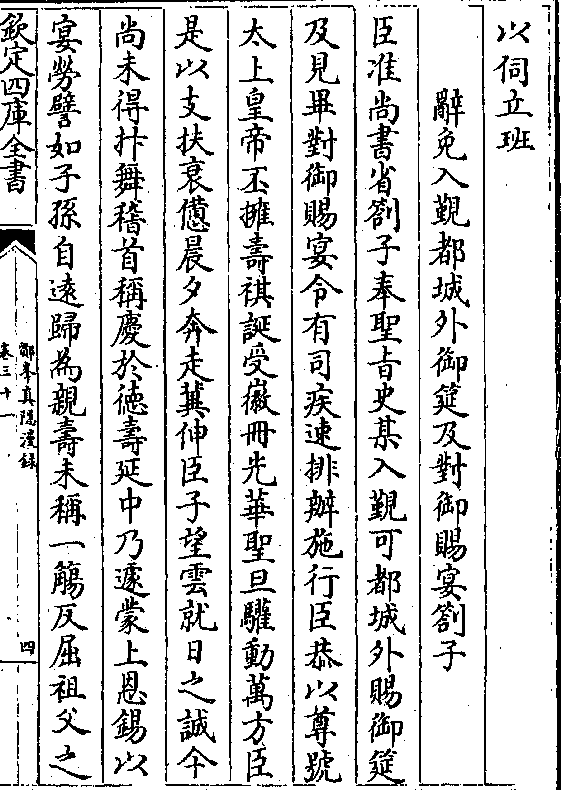 以伺立班
辭免入覲都城外御筵及對御賜宴劄子
臣准尚書省劄子奉聖旨史某入覲可都城外賜御筵
及見畢對御賜宴令有司疾速排辦施行臣恭以尊號
太上皇帝丕擁壽祺誕受徽冊先華聖旦驩動萬方臣
是以支扶衰憊晨夕奔走冀伸臣子望雲就日之誠今
尚未得抃舞稽首稱慶於徳壽延中乃遽蒙上恩錫以
宴勞譬如子孫自逺歸為親壽未稱一觴反屈祖父之
欽定四庫全書
鄮峯真隱漫録
卷三十一
四